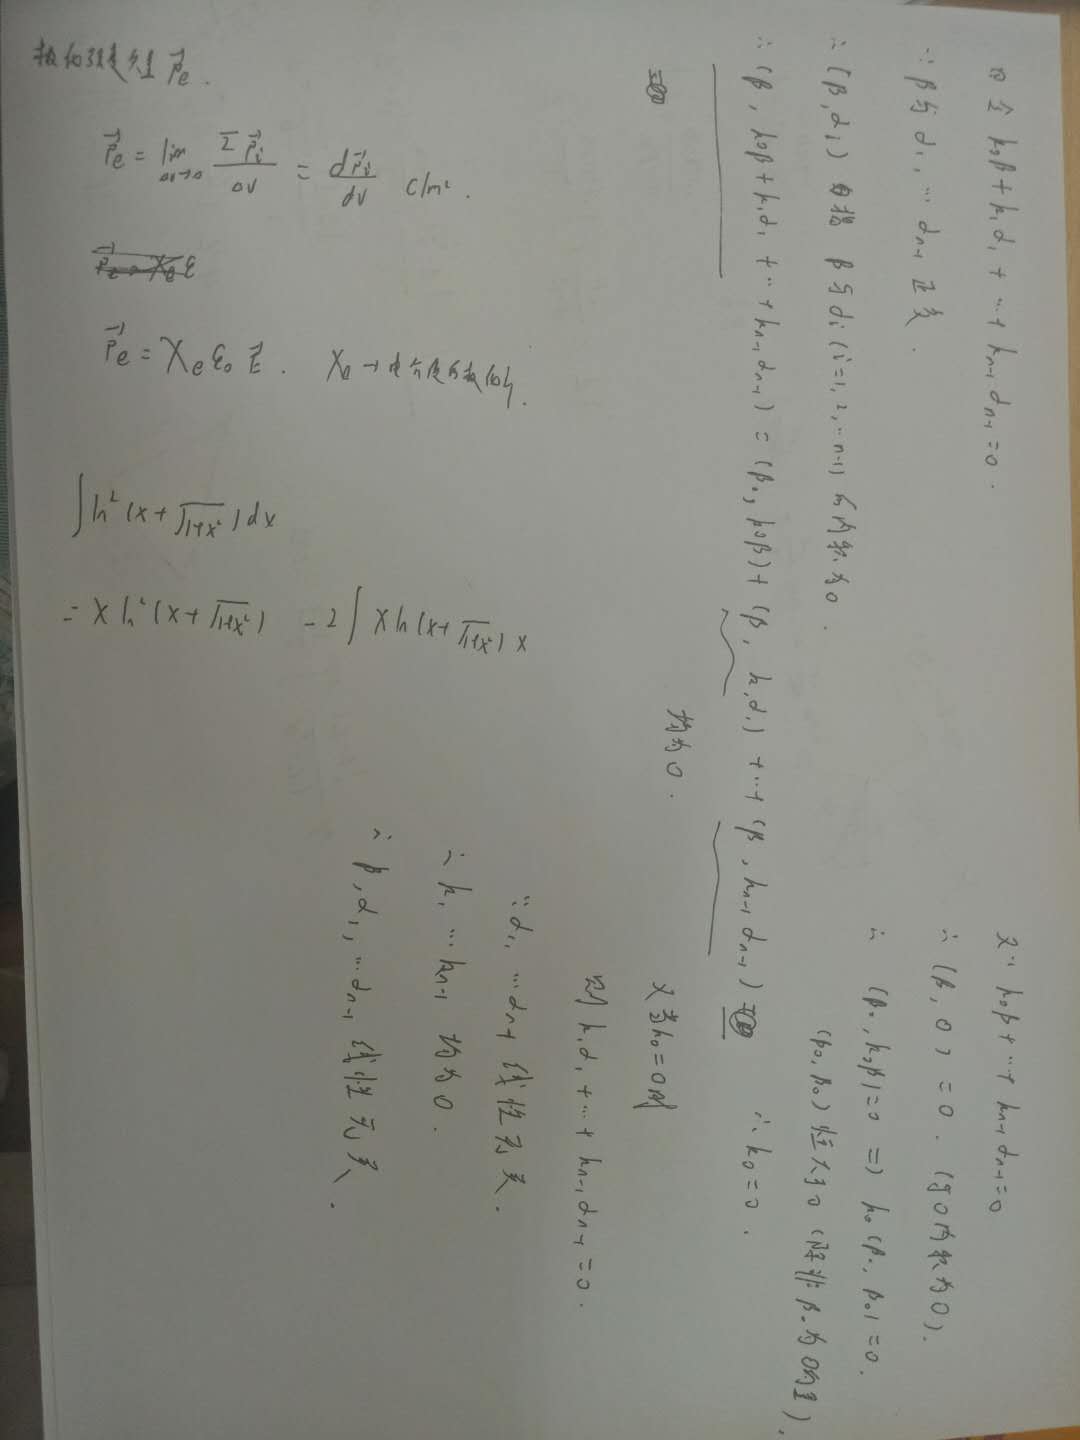 极化强度矢量 P⃗e.
P⃗e = lim Δv→0 ΣP⃗i / Δv = dP⃗i / dv C/m².
P⃗e = χe ε0 E⃗. χe → 电介质极化
∫ln²(x+√1+x²)dx
= x ln²(x+√1+x²) - 2∫ x ln(x+√1+x²) x
① 令 k0β+k1α1+…+kn-1αn-1=0.
∵ β与α1,…αn-1正交.
∴ (β,αi) 内积 β与αi(i=1,2,…n-1)的内积为0.
∴ (β, k0β+k1α1+…+kn-1αn-1) = (β0, k0β)+(β, k1α1)+…+(β, kn-1αn-1)
均为0.
又∵ k0β+…+kn-1αn-1=0
∴ (β,0)=0. (与0内积为0).
∴ (β0,k0β)=0 ⇒ k0(β0,β0)=0.
(β0,β0)恒大于0 (除非β0为0向量),
∴ k0=0.
又当k0=0时
则 k1α1+…+kn-1αn-1=0.
∵ α1,…αn-1线性无关.
∴ k1…kn-1均为0.
∴ β,α1,…αn-1线性无关.